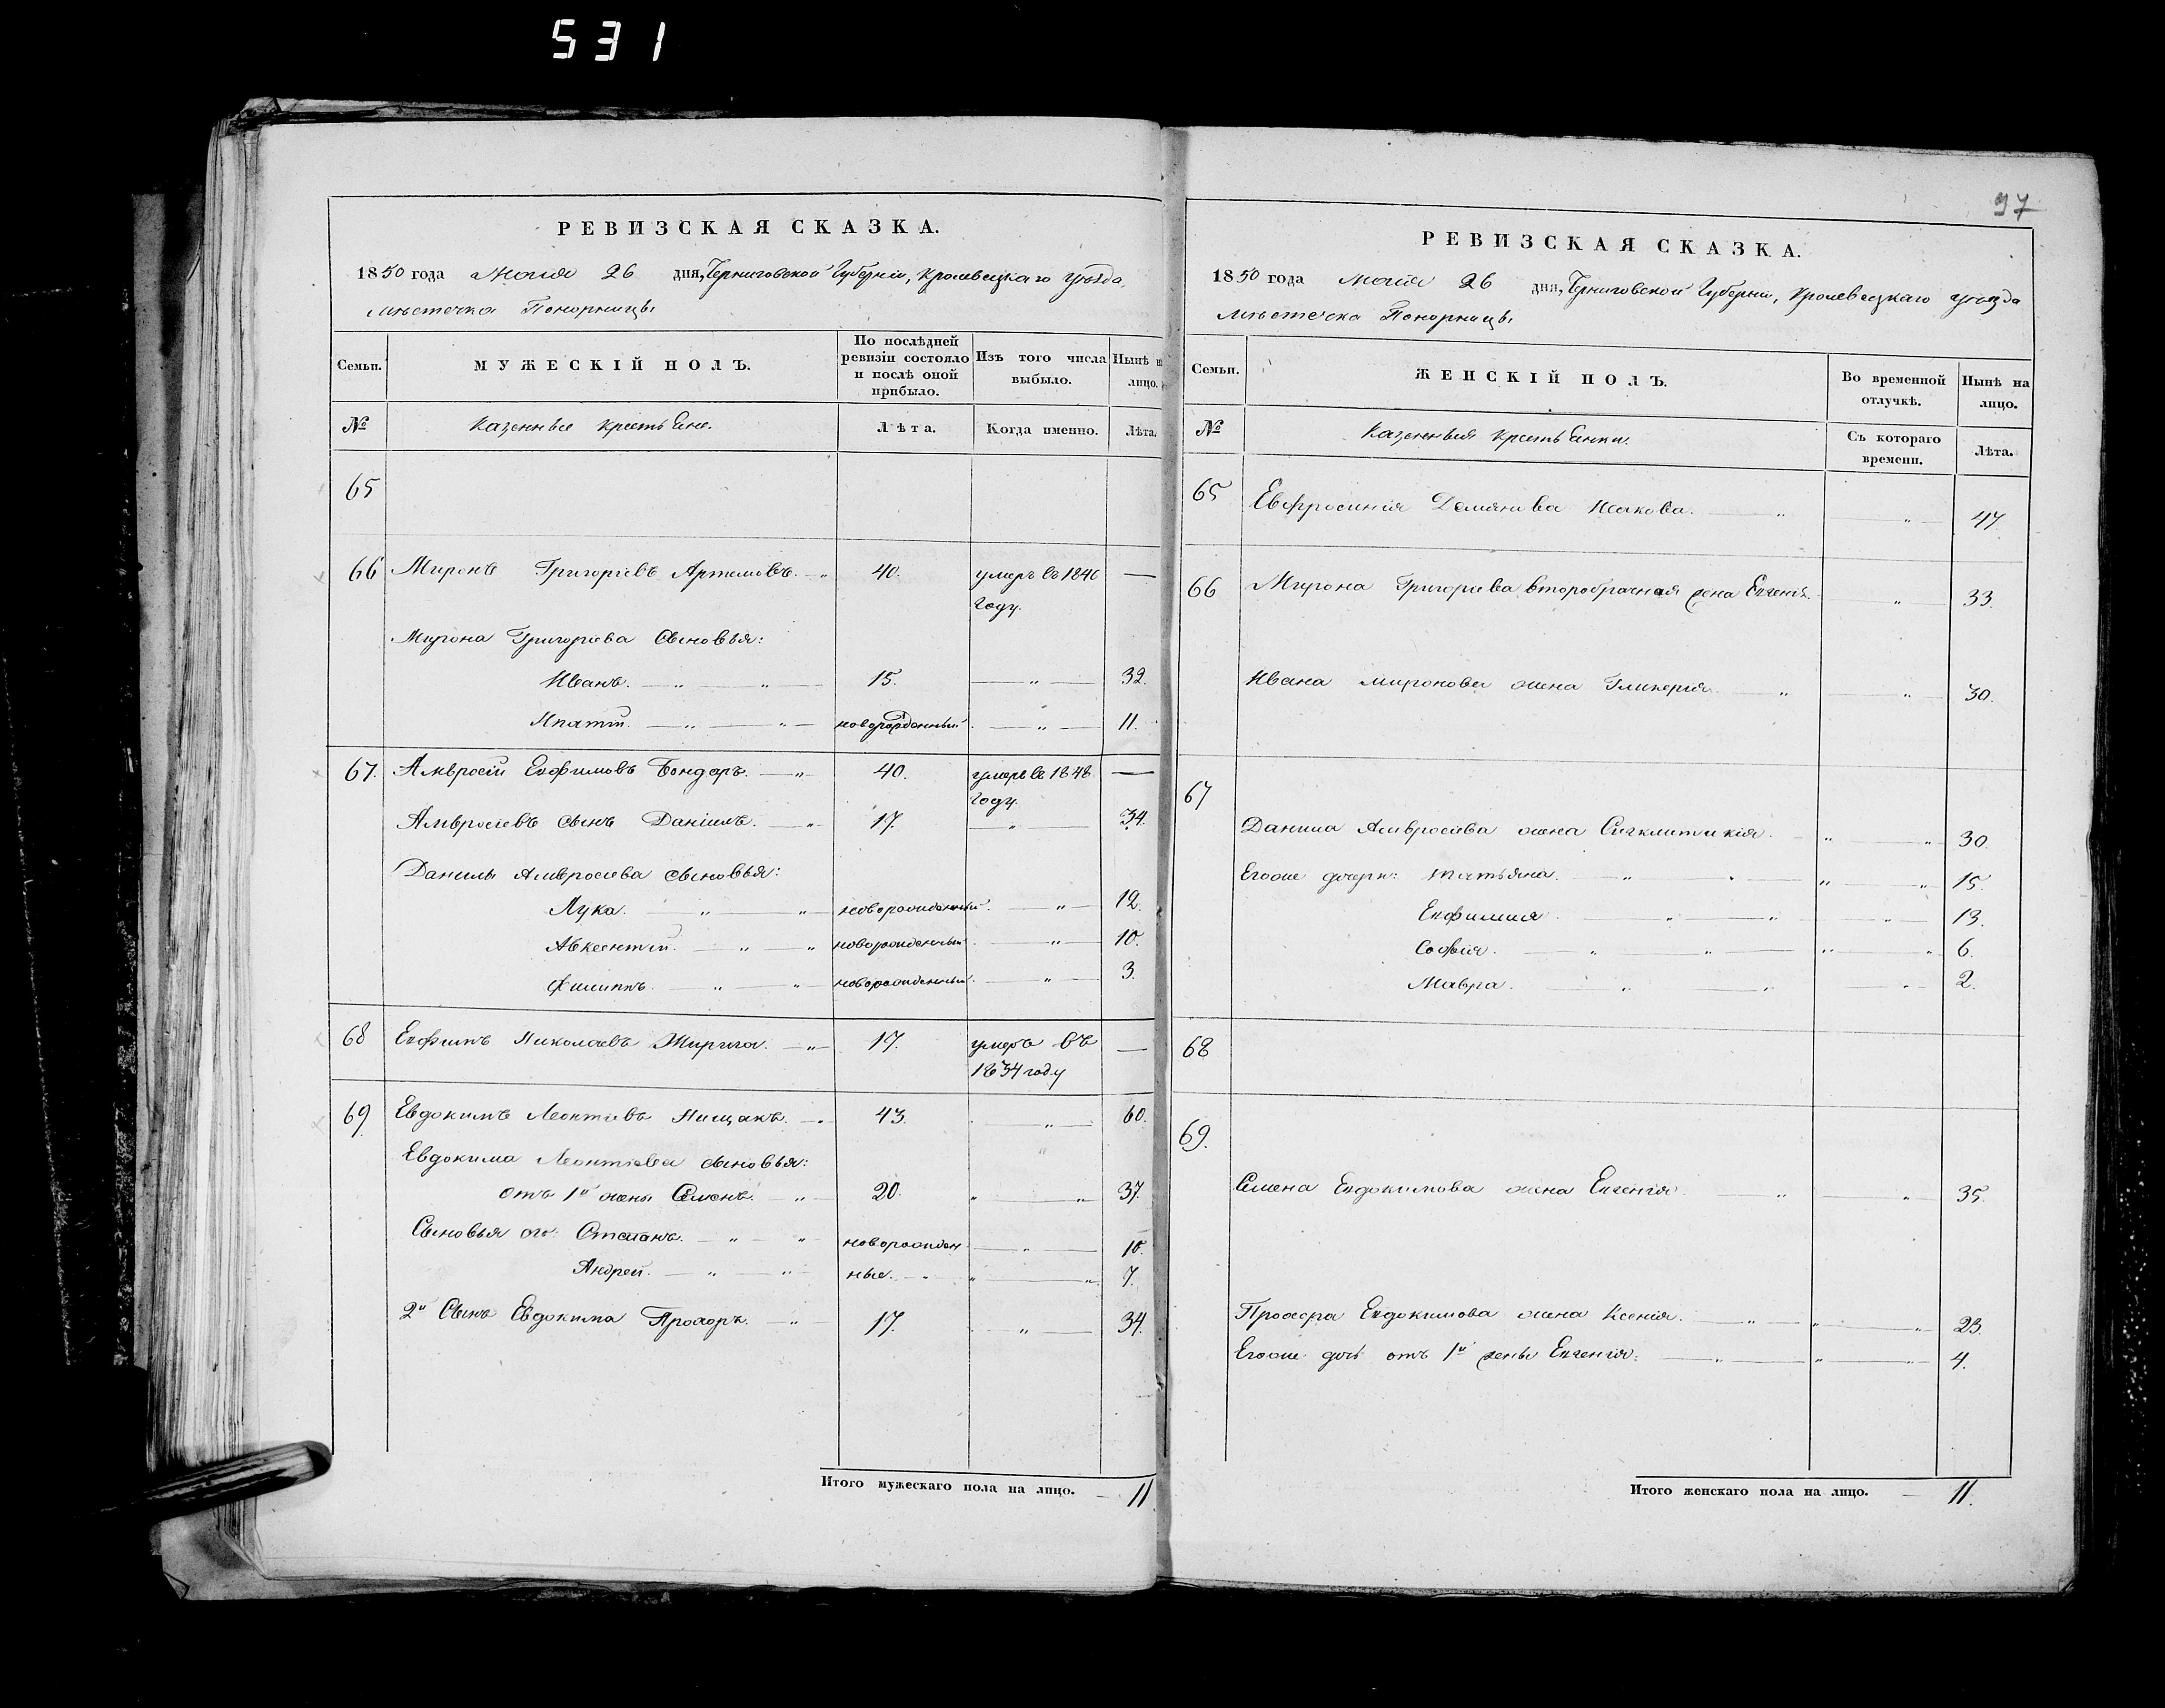 531
РЕВИЗСКАЯ СКАЗКА.
1850 года Июля 26 дня, Черниговской Губерніи, Кролевецкаго уѣзда,
мѣстечка Понорницы
Семьи.
МУЖЕСКІЙ ПОЛЪ.
По послѣдней ревизіи состояло и послѣ оной прибыло.
Изъ того числа выбыло.
Нынѣ н лицо.
№
Казенные крестьяне.
Лѣта.
Когда именно.
Лѣта.
65
66 Миронъ Григоріевъ Артемовъ. 40. умеръ въ 1846 —
году.
Мирона Григоріева Сыновья:
Иванъ. 15. 32.
Ипатій. новорожденный 11.
67. Амвросій Евфимовъ Бондарь. 40. умеръ въ 1848 —
году.
Амвросіевъ сынъ Даніилъ. 17. 34.
Данилы Амвросіева сыновья:
Лука. новорожденный. 12.
Авксентій. новорожденный. 10.
Филиппъ. новорожденный. 3.
68 Евфимъ Николаевъ 17. умеръ въ —
1834 году
69 Евдокимъ Леонтіевъ Нищакъ. 43. 60.
Евдокима Леонтіева сыновья:
отъ 1й жены Семенъ. 20. 37.
Сыновья его: Степанъ. новорожден 10.
Андрей. ные. 7.
2й Сынъ Евдокима Прохоръ. 17. 34.
Итого мужескаго пола на лицо. — 11
97
РЕВИЗСКАЯ СКАЗКА.
1850 года Июля 26 дня, Черниговской Губерніи, Кролевецкаго уѣзда
мѣстечка Понорницы
Семьи.
ЖЕНСКІЙ ПОЛЪ.
Во временной отлучкѣ.
Нынѣ на лицо.
№
Казенныя крестьянки.
Съ котораго времени.
Лѣта.
65 Евфросинія Демянова Исакова. 47.
66 Мирона Григоріева второбрачная жена Евгенія. 33.
Ивана Миронова жена Гликерія 30.
67
Данила Амвросіева жена Сигклитикія. 30.
Егоже дочери: Татьяна. 15.
Евфимия. 13.
Софія. 6.
Мавра. 2.
68
69.
Семена Евдокимова жена Евгенія 35.
Прохора Евдокимова жена Ксенія. 23.
Егоже дочь отъ 1й жены Евгенія. 4.
Итого женскаго пола на лицо. — 11.